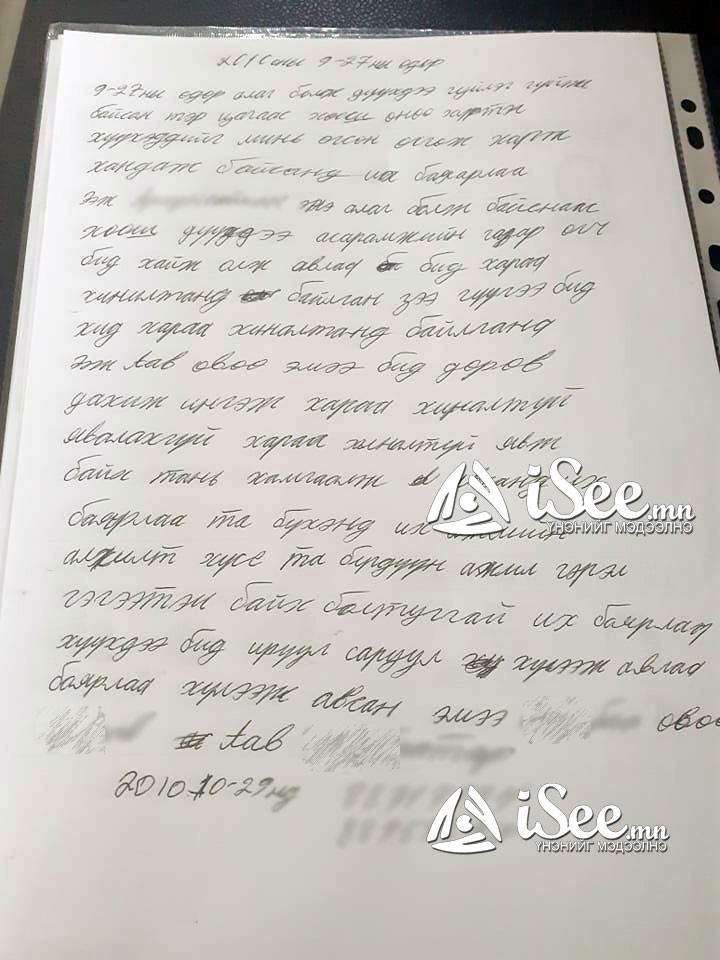 2010 оны 9-27ны өдөр
9-27ны өдөр алаг болж дүүхдээ гүйлэг гүйж
байсан тэр цагаас хойш оноо хүртэл
хүүхэддийг минь өсөн өсгөж харж
хандаж байсанд их баярлаа
ээж ээ алаг болж байснаас
хойш дүүхдээ асарамжийн газар өгч
бид хайж олж авлаа бид хараа
хиналтанд байлган зээ гүүгээ бид
хид хараа хиналтанд байлганд
ээж Аав овоо эмээ бид дөрөв
дахиж ингэж хараа хиналтүй
явалахгүй хараа хиналтүй явж
байх тань халгаалж их
баярлаа та бүхэнд их ажлийн
алжилт хүсе та бүгдүүн ажил гэрэл
гэгээтэн байх болтуггай их баярлаа
хүүхдээ бид ируул саруул хүлээж авлаа
баярлаа хүлээж авсан эмээ овоо
Аав
2010.10-29нд
iSee.mn
ҮНЭНИЙГ МЭДЭЭЛНЭ
iSee.mn
ҮНЭНИЙГ МЭДЭЭЛНЭ